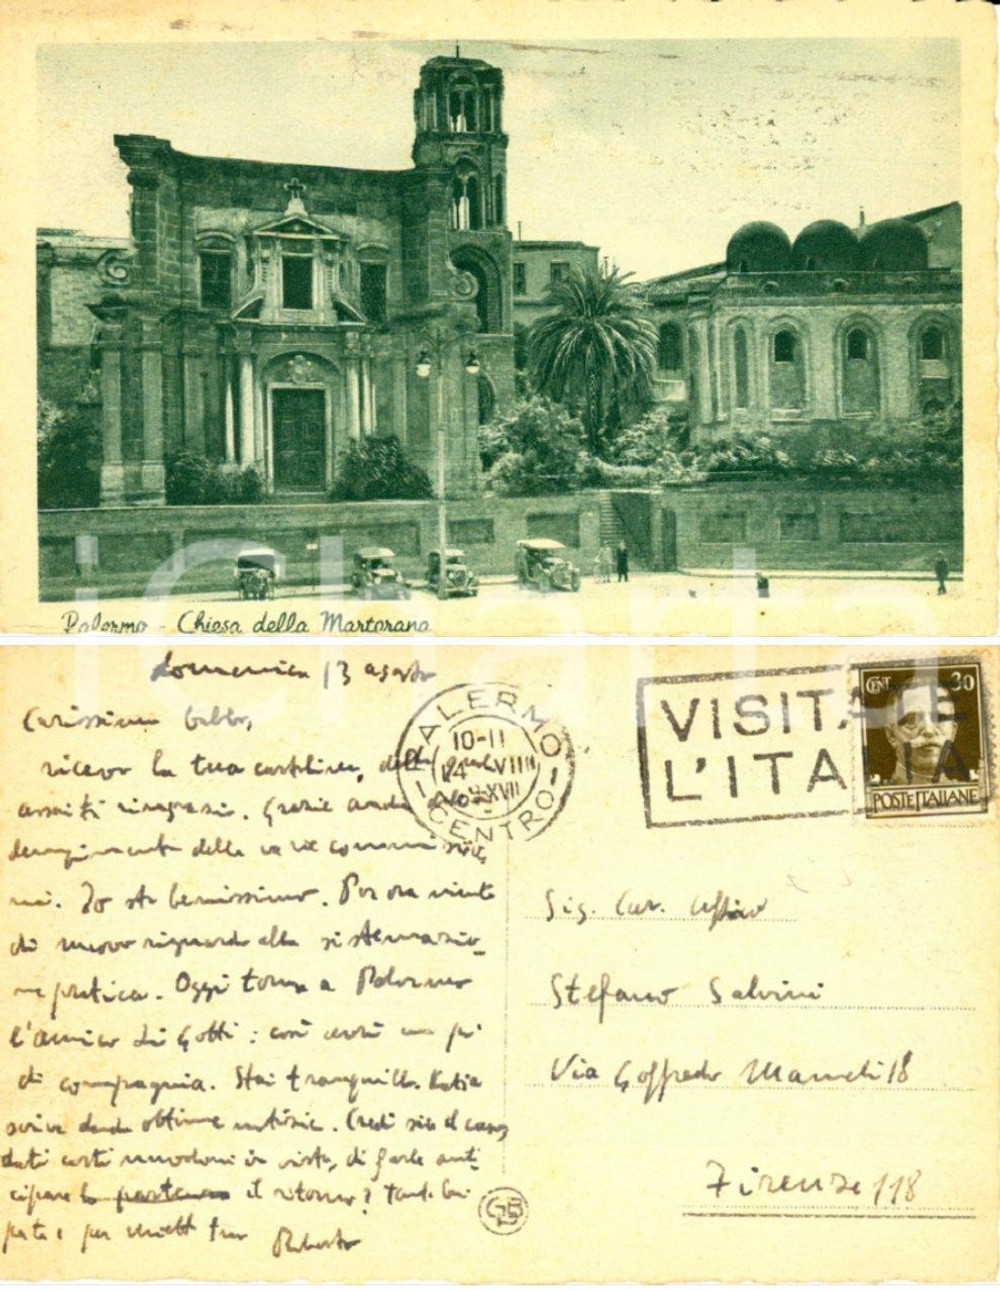 Palermo - Chiesa della Martorana
iCharta
domenica 13 agosto
Carissimo babbo,
ricevo la tua cartolina, della quale
assai ti ringrazio. Grazie anche
della varie commissio
ni. Io sto benissimo. Per ora niente
di nuovo riguardo alla sistemazio-
ne pratica. Oggi torna a Palermo
l'amico Li Gotti: così avrò un po'
di compagnia. Stai tranquillo. Katia
scrive dando ottime notizie. Credi sia il caso,
dati certi movimenti in vista, di farle anti-
cipare il ritorno? Tanti baci
per
Roberto
PALERMO
CENTRO
10-11
14 VIII
XVII
VISITATE
L'ITALIA
CENT. 30
POSTE ITALIANE
Sig. Cav. Uff.
Stefano Salvini
Via Goffredo Mameli 18
Firenze 118